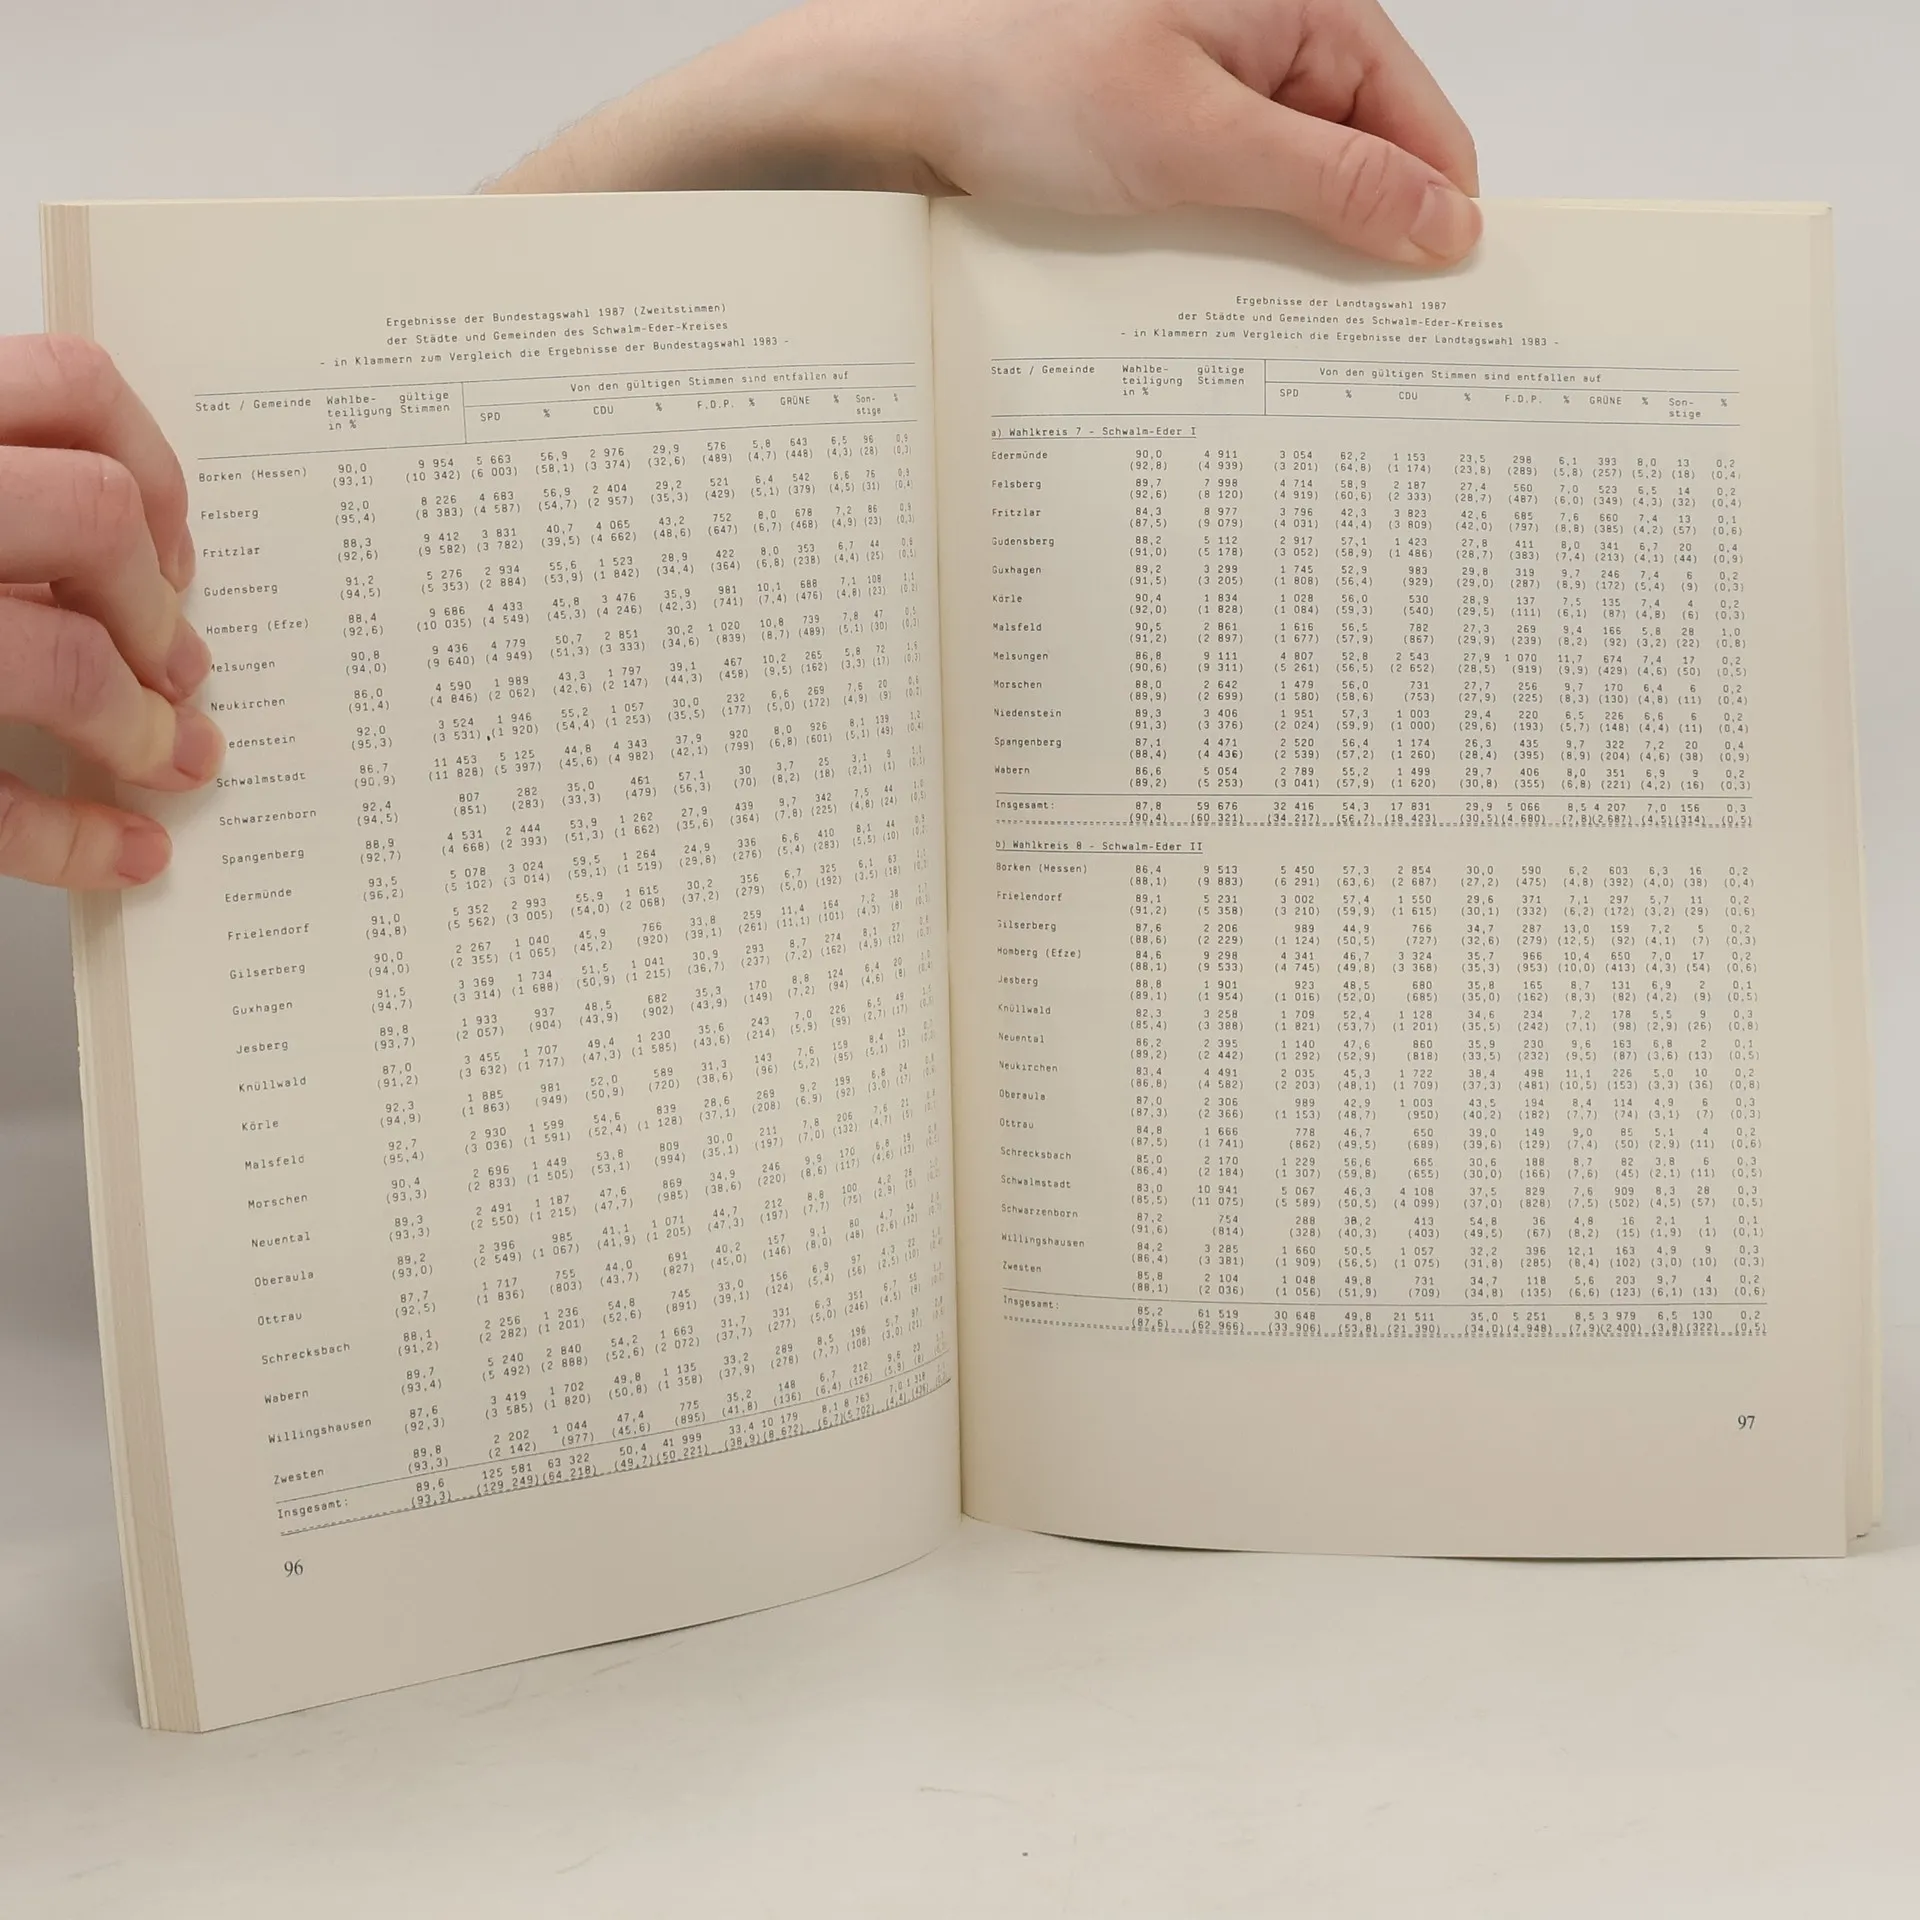 Ergebnisse der Bundestagswahl 1987 (Zweitstimmen)
der Städte und Gemeinden des Schwalm-Eder-Kreises
- in Klammern zum Vergleich die Ergebnisse der Bundestagswahl 1983 -
Stadt / Gemeinde Wahlbe- gültige Von den gültigen Stimmen sind entfallen auf
teiligung Stimmen SPD % CDU % F.D.P. % GRÜNE % Son- %
in % stige
Borken (Hessen) 90,0 9 954 5 663 56,9 2 976 29,9 576 5,8 643 6,5 96
(93,1) (10 342) (6 003) (58,1) (3 374) (32,6) (489) (4,7) (448) (4,3) (28)
Felsberg 92,0 8 226 4 683 56,9 2 404 29,2 521 6,4 542 6,6 76
(95,4) (8 383) (4 587) (54,7) (2 957) (35,3) (429) (5,1) (379) (4,5) (31)
Fritzlar 88,3 9 412 3 831 40,7 4 065 43,2 752 8,0 678 7,2 86
(92,6) (9 582) (3 782) (39,5) (4 662) (48,6) (647) (6,7) (468) (4,9) (23)
Gudensberg 91,2 5 276 2 934 55,6 1 523 28,9 422 8,0 353 6,7 44
(94,5) (5 353) (2 884) (53,9) (1 842) (34,4) (364) (6,8) (238) (4,4) (25)
Homberg (Efze) 88,4 9 686 4 433 45,8 3 476 35,9 981 10,1 688 7,1 108
(92,6) (10 035) (4 549) (45,3) (4 246) (42,3) (741) (7,4) (476) (4,8) (23)
Melsungen 90,8 9 436 4 779 50,7 2 851 30,2 1 020 10,8 739 7,8 47
(94,0) (9 640) (4 949) (51,3) (3 333) (34,6) (839) (8,7) (489) (5,1) (30)
Neukirchen 86,0 4 590 1 989 43,3 1 797 39,1 467 10,2 265 5,8 72
(91,4) (4 846) (2 062) (42,6) (2 147) (44,3) (458) (9,5) (162) (3,3) (17)
edenstein 92,0 3 524 1 946 55,2 1 057 30,0 232 6,6 269 7,6 20
(95,3) (3 531) (1 920) (54,4) (1 253) (35,5) (177) (5,0) (172) (4,9) (9)
Schwalmstadt 86,7 11 453 5 125 44,8 4 343 37,9 920 8,0 926 8,1 139
(90,9) (11 828) (5 397) (45,6) (4 982) (42,1) (799) (6,8) (601) (5,1) (49)
Schwarzenborn 92,4 807 282 35,0 461 57,1 30 3,7 25 3,1 9
(94,5) (851) (283) (33,3) (479) (56,3) (70) (8,2) (18) (2,1) (1)
Spangenberg 88,9 4 531 2 444 53,9 1 262 27,9 439 9,7 342 7,5 44
(92,7) (4 668) (2 393) (51,3) (1 662) (35,6) (364) (7,8) (225) (4,8) (24)
Edermünde 93,5 5 078 3 024 59,5 1 264 24,9 336 6,6 410 8,1 44
(96,2) (5 102) (3 014) (59,1) (1 519) (29,8) (276) (5,4) (283) (5,5) (10)
Frielendorf 91,0 5 352 2 993 55,9 1 615 30,2 356 6,7 325 6,1 63
(94,8) (5 562) (3 005) (54,0) (2 068) (37,2) (279) (5,0) (192) (3,5) (18)
Gilserberg 90,0 2 267 1 040 45,9 766 33,8 259 11,4 164 7,2 38
(94,0) (2 355) (1 065) (45,2) (920) (39,1) (261) (11,1) (101) (4,3) (8)
Guxhagen 91,5 3 369 1 734 51,5 1 041 30,9 293 8,7 274 8,1 27
(94,7) (3 314) (1 688) (50,9) (1 215) (36,7) (237) (7,2) (162) (4,9) (12)
Jesberg 89,8 1 933 937 48,5 682 35,3 170 8,8 124 6,4 20
(93,7) (2 057) (904) (43,9) (902) (43,9) (149) (7,2) (94) (4,6) (8)
Knüllwald 87,0 3 455 1 707 49,4 1 230 35,6 243 7,0 226 6,5 49
(91,2) (3 632) (1 717) (47,3) (1 585) (43,6) (214) (5,9) (99) (2,7) (17)
Körle 92,3 1 885 981 52,0 589 31,3 143 7,6 159 8,4 13
(94,9) (1 863) (949) (50,9) (720) (38,6) (96) (5,2) (95) (5,1) (3)
Malsfeld 92,7 2 930 1 599 54,6 839 28,6 269 9,2 199 6,8 24
(95,4) (3 036) (1 591) (52,4) (1 128) (37,1) (208) (6,9) (92) (3,0) (17)
Morschen 90,4 2 696 1 449 53,8 809 30,0 211 7,8 206 7,6 21
(93,3) (2 833) (1 505) (53,1) (994) (35,1) (197) (7,0) (132) (4,7) (5)
Neuental 89,3 2 491 1 187 47,6 869 34,9 246 9,9 170 6,8 19
(93,3) (2 550) (1 215) (47,7) (985) (38,6) (220) (8,6) (117) (4,6) (13)
Oberaula 89,2 2 396 985 41,1 1 071 44,7 212 8,8 100 4,2 28
(93,0) (2 549) (1 067) (41,9) (1 205) (47,3) (197) (7,7) (75) (2,9) (5)
Ottrau 87,7 1 717 755 44,0 691 40,2 157 9,1 80 4,7 34
(92,5) (1 836) (803) (43,7) (827) (45,0) (146) (8,0) (48) (2,6) (12)
Schrecksbach 88,1 2 256 1 236 54,8 745 33,0 156 6,9 97 4,3 22
(91,2) (2 282) (1 201) (52,6) (891) (39,1) (124) (5,4) (56) (2,5) (10)
Wabern 89,7 5 240 2 840 54,2 1 663 31,7 331 6,3 351 6,7 55
(93,4) (5 492) (2 888) (52,6) (2 072) (37,7) (277) (5,0) (246) (4,5) (9)
Willingshausen 87,6 3 419 1 702 49,8 1 135 33,2 289 8,5 196 5,7 97
(92,3) (3 585) (1 820) (50,8) (1 358) (37,9) (278) (7,7) (108) (3,0) (21)
Zwesten 89,8 2 202 1 044 47,4 775 35,2 148 6,7 212 9,6 23
(93,3) (2 142) (977) (45,6) (895) (41,8) (136) (6,4) (126) (5,9) (8)
Insgesamt: 89,6 125 581 63 322 50,4 41 999 33,4 10 179 8,1 8 763 7,0 1 318
(93,3) (129 249) (64 218) (49,7) (50 221) (38,9) (8 672) (6,7) (5 702) (4,4) (436)
96
Ergebnisse der Landtagswahl 1987
der Städte und Gemeinden des Schwalm-Eder-Kreises
- in Klammern zum Vergleich die Ergebnisse der Landtagswahl 1983 -
Stadt / Gemeinde Wahlbe- gültige Von den gültigen Stimmen sind entfallen auf
teiligung Stimmen SPD % CDU % F.D.P. % GRÜNE % Son- %
in % stige
a) Wahlkreis 7 - Schwalm-Eder I
Edermünde 90,0 4 911 3 054 62,2 1 153 23,5 298 6,1 393 8,0 13 0,2
(92,8) (4 939) (3 201) (64,8) (1 174) (23,8) (289) (5,8) (257) (5,2) (18) (0,4)
Felsberg 89,7 7 998 4 714 58,9 2 187 27,4 560 7,0 523 6,5 14 0,2
(92,6) (8 120) (4 919) (60,6) (2 333) (28,7) (487) (6,0) (349) (4,3) (32) (0,4)
Fritzlar 84,3 8 977 3 796 42,3 3 823 42,6 685 7,6 660 7,4 13 0,1
(87,5) (9 079) (4 031) (44,4) (3 809) (42,0) (797) (8,8) (385) (4,2) (57) (0,6)
Gudensberg 88,2 5 112 2 917 57,1 1 423 27,8 411 8,0 341 6,7 20 0,4
(91,0) (5 178) (3 052) (58,9) (1 486) (28,7) (383) (7,4) (213) (4,1) (44) (0,9)
Guxhagen 89,2 3 299 1 745 52,9 983 29,8 319 9,7 246 7,4 6 0,2
(91,5) (3 205) (1 808) (56,4) (929) (29,0) (287) (8,9) (172) (5,4) (9) (0,3)
Körle 90,4 1 834 1 028 56,0 530 28,9 137 7,5 135 7,4 4 0,2
(92,0) (1 828) (1 084) (59,3) (540) (29,5) (111) (6,1) (87) (4,8) (6) (0,3)
Malsfeld 90,5 2 861 1 616 56,5 782 27,3 269 9,4 166 5,8 28 1,0
(91,2) (2 897) (1 677) (57,9) (867) (29,9) (239) (8,2) (92) (3,2) (22) (0,8)
Melsungen 86,8 9 111 4 807 52,8 2 543 27,9 1 070 11,7 674 7,4 17 0,2
(90,6) (9 311) (5 261) (56,5) (2 652) (28,5) (919) (9,9) (429) (4,6) (50) (0,5)
Morschen 88,0 2 642 1 479 56,0 731 27,7 256 9,7 170 6,4 6 0,2
(89,9) (2 699) (1 580) (58,6) (753) (27,9) (225) (8,3) (130) (4,8) (11) (0,4)
Niedenstein 89,3 3 406 1 951 57,3 1 003 29,4 220 6,5 226 6,6 6 0,2
(91,3) (3 376) (2 024) (59,9) (1 000) (29,6) (193) (5,7) (148) (4,4) (11) (0,4)
Spangenberg 87,1 4 471 2 520 56,4 1 174 26,3 435 9,7 322 7,2 20 0,4
(88,4) (4 436) (2 539) (57,2) (1 260) (28,4) (395) (8,9) (204) (4,6) (38) (0,9)
Wabern 86,6 5 054 2 789 55,2 1 499 29,7 406 8,0 351 6,9 9 0,2
(89,2) (5 253) (3 041) (57,9) (1 620) (30,8) (355) (6,8) (221) (4,2) (16) (0,3)
Insgesamt: 87,8 59 676 32 416 54,3 17 831 29,9 5 066 8,5 4 207 7,0 156 0,3
(90,4) (60 321) (34 217) (56,7) (18 423) (30,5) (4 680) (7,8) (2 687) (4,5) (314) (0,5)
b) Wahlkreis 8 - Schwalm-Eder II
Borken (Hessen) 86,4 9 513 5 450 57,3 2 854 30,0 590 6,2 603 6,3 16 0,2
(88,1) (9 883) (6 291) (63,6) (2 687) (27,2) (475) (4,8) (392) (4,0) (38) (0,4)
Frielendorf 89,1 5 231 3 002 57,4 1 550 29,6 371 7,1 297 5,7 11 0,2
(91,2) (5 358) (3 210) (59,9) (1 615) (30,1) (332) (6,2) (172) (3,2) (29) (0,6)
Gilserberg 87,6 2 206 989 44,9 766 34,7 287 13,0 159 7,2 5 0,2
(88,6) (2 229) (1 124) (50,5) (727) (32,6) (279) (12,5) (92) (4,1) (7) (0,3)
Homberg (Efze) 84,6 9 298 4 341 46,7 3 324 35,7 966 10,4 650 7,0 17 0,2
(88,1) (9 533) (4 745) (49,8) (3 368) (35,3) (953) (10,0) (413) (4,3) (54) (0,6)
Jesberg 88,8 1 901 923 48,5 680 35,8 165 8,7 131 6,9 2 0,1
(89,1) (1 954) (1 016) (52,0) (685) (35,0) (162) (8,3) (82) (4,2) (9) (0,5)
Knüllwald 82,3 3 258 1 709 52,4 1 128 34,6 234 7,2 178 5,5 9 0,3
(85,4) (3 388) (1 821) (53,7) (1 201) (35,5) (242) (7,1) (98) (2,9) (26) (0,8)
Neuental 86,2 2 395 1 140 47,6 860 35,9 230 9,6 163 6,8 2 0,1
(89,2) (2 442) (1 292) (52,9) (818) (33,5) (232) (9,5) (87) (3,6) (13) (0,5)
Neukirchen 83,4 4 491 2 035 45,3 1 722 38,4 498 11,1 226 5,0 10 0,2
(86,8) (4 582) (2 203) (48,1) (1 709) (37,3) (481) (10,5) (153) (3,3) (36) (0,8)
Oberaula 87,0 2 306 989 42,9 1 003 43,5 194 8,4 114 4,9 6 0,3
(87,3) (2 366) (1 153) (48,7) (950) (40,2) (182) (7,7) (74) (3,1) (7) (0,3)
Ottrau 84,8 1 666 778 46,7 650 39,0 149 9,0 85 5,1 4 0,2
(87,5) (1 741) (862) (49,5) (689) (39,6) (129) (7,4) (50) (2,9) (11) (0,6)
Schrecksbach 85,0 2 170 1 229 56,6 665 30,6 188 8,7 82 3,8 6 0,3
(86,4) (2 184) (1 307) (59,8) (655) (30,0) (166) (7,6) (45) (2,1) (11) (0,5)
Schwalmstadt 83,0 10 941 5 067 46,3 4 108 37,5 829 7,6 909 8,3 28 0,3
(85,5) (11 075) (5 589) (50,5) (4 099) (37,0) (828) (7,5) (502) (4,5) (57) (0,5)
Schwarzenborn 87,2 754 288 38,2 413 54,8 36 4,8 16 2,1 1 0,1
(91,6) (814) (328) (40,3) (403) (49,5) (67) (8,2) (15) (1,9) (1) (0,1)
Willingshausen 84,2 3 285 1 660 50,5 1 057 32,2 396 12,1 163 4,9 9 0,3
(86,4) (3 381) (1 909) (56,5) (1 075) (31,8) (285) (8,4) (102) (3,0) (10) (0,3)
Zwesten 85,8 2 104 1 048 49,8 731 34,7 118 5,6 203 9,7 4 0,2
(88,1) (2 036) (1 056) (51,9) (709) (34,8) (135) (6,6) (123) (6,1) (13) (0,6)
Insgesamt: 85,2 61 519 30 648 49,8 21 511 35,0 5 251 8,5 3 979 6,5 130 0,2
(87,6) (62 966) (33 906) (53,8) (21 390) (34,0) (4 948) (7,9) (2 400) (3,8) (322) (0,5)
97